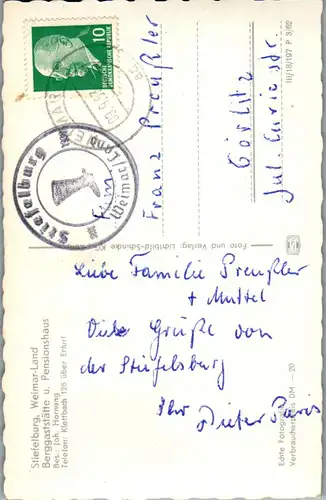 Stiefelburg, Weimar-Land
Berggaststätte u. Pensionshaus
Bes.: Joh. Hornung
Telefon: Klettbach 125 über Erfurt
Liebe Familie Preußler
+ Muttel
Viele Grüße von
der Stiefelsburg
Ihr Dieter Paris
Echte Fotografie
Verbraucherpreis DM -,20
Foto und Verlag: Lichtbild-Schincke KG
III/18/197 P 3/62
10
DEUTSCHE DEMOKRATISCHE REPUBLIK
Stiefelburg
Weimar/Land
Franz Preußler
Görlitz
Jul. Curie Str.